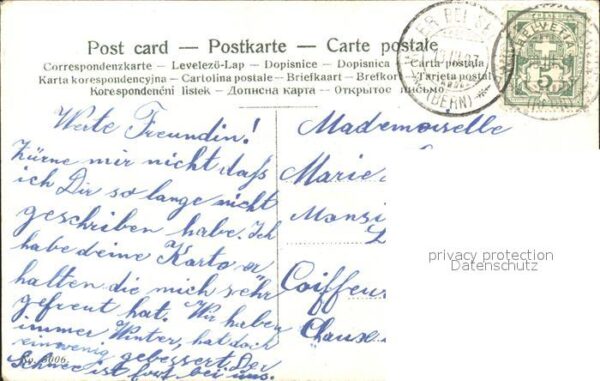 Post card — Postkarte — Carte postale
Correspondenzkarte — Levelező-Lap — Dopisnice — Dopisnica — Carta postale
Karta korespondencyjna — Cartolina postale — Briefkaart — Brefkort — Tarjeta postal
Korespondenční listek — Дописна карта — Открытое письмо
HELVETIA
5
(BERN)
Werte Freundin!
Zürne mir nicht daß
ich Dir so lange nicht
geschrieben habe. Ich
habe deine Karte er
halten die mich sehr
gefreut hat. Wir haben
immer Winter, hat doch
ein wenig gebessert. Der
Schnee ist fort bei uns.
No. 5006.
Mademoiselle
Marie
Monsi
Coiffeu
Chaux
privacy protection
Datenschutz